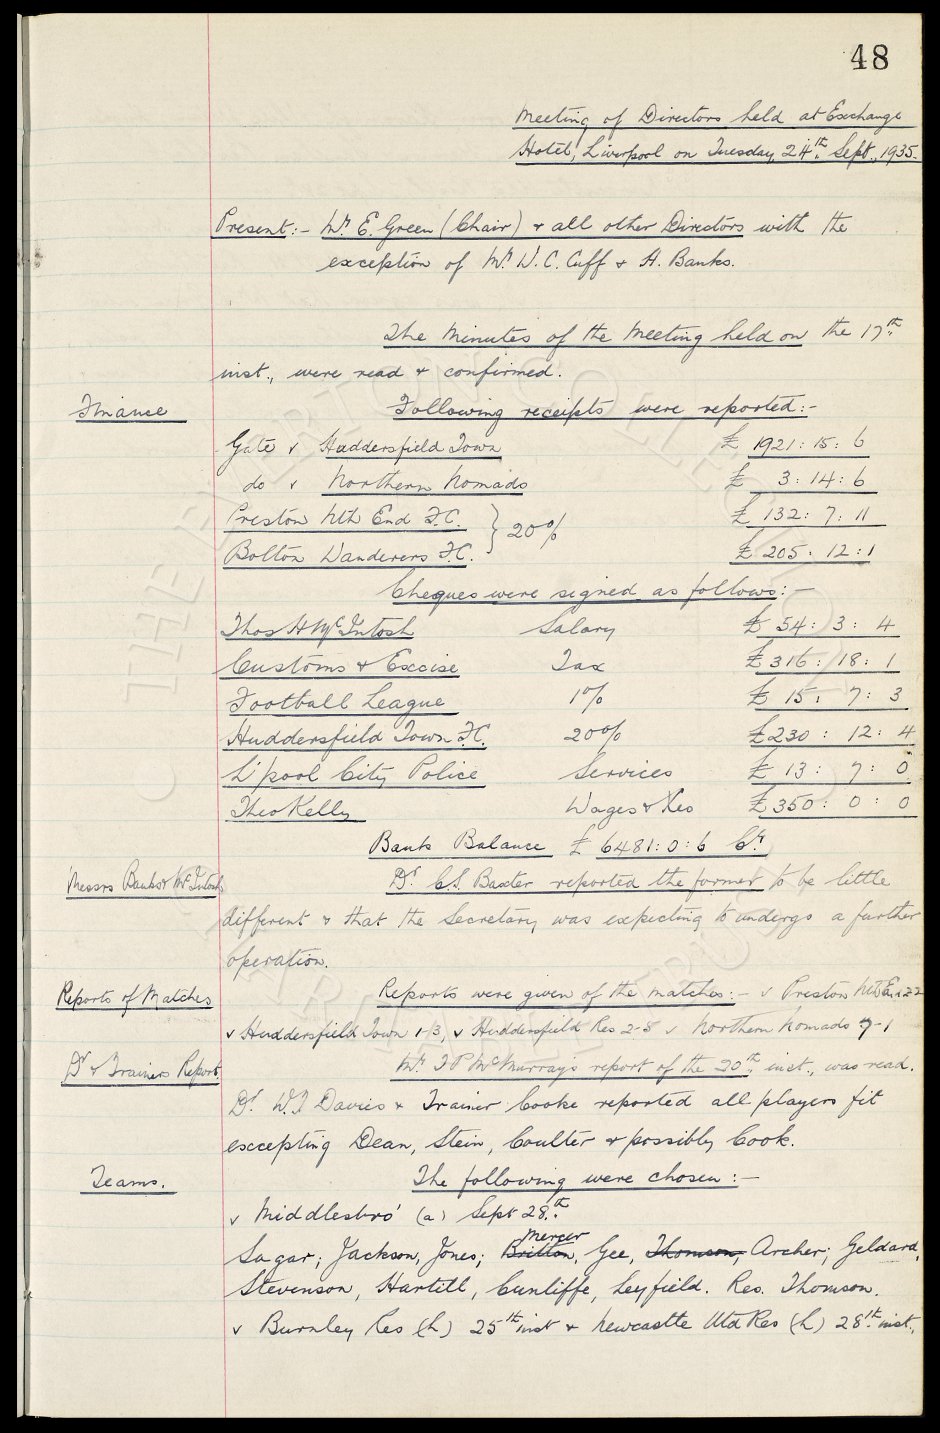 48
Meeting of Directors held at Exchange
Hotel, Liverpool on Tuesday, 24th. Sept., 1935.
Present:- Mr. E. Green (Chair) & all other Directors with the
exception of Mr. W. C. Cuff & A. Banks.
The Minutes of the Meeting held on the 17th
inst., were read & confirmed.
Finance Following receipts were reported:-
Gate v Huddersfield Town £ 1921: 15: 6
do v Northern Nomads £ 3: 14: 6
Preston Nth End F.C. } 20% £ 132: 7: 11
Bolton Wanderers F.C. £ 205: 12: 1
Cheques were signed as follows:-
Thos H McIntosh Salary £ 54: 3: 4
Customs & Excise Tax £ 316: 18: 1
Football League 1% £ 15: 7: 3
Huddersfield Town F.C. 20% £ 230: 12: 4
L'pool City Police Services £ 13: 7: 0
Theo Kelly Wages & Xes £ 350: 0: 0
Bank Balance £ 6481: 0: 6 Cr.
Messrs Banks & McIntosh Dr. C.S. Baxter reported the former to be little
different & that the Secretary was expecting to undergo a further
operation.
Reports of Matches Reports were given of the matches:- v Preston Nth End 2-2
v Huddersfield Town 1-3, v Huddersfield Res 2-5 v Northern Nomads 7-1
Dr & Trainers Report. Mr. J P McMurray's report of the 20th. inst., was read.
Dr. W.J Davies & Trainer Cooke reported all players fit
excepting Dean, Stein, Coulter & possibly Cook.
Teams. The following were chosen:-
v Middlesbro' (a) Sept 28.th
Mercer
Sagar; Jackson, Jones; Britton, Gee, Thomson, Archer; Geldard,
Stevenson, Hartill, Cunliffe, Leyfield. Res. Thomson.
v Burnley Res (h) 25th inst & Newcastle Utd Res (h) 28th. inst.,
© THE EVERTON COLLECTION
CHARITABLE TRUST